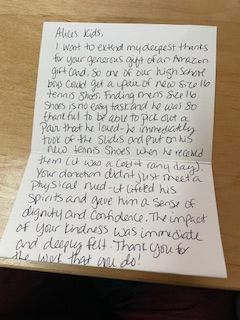 Alice's Kids,
I want to extend my deepest thanks
for your generous gift of an Amazon
gift card, so one of our high school
boys could get a pair of new size 16
tennis shoes. Finding mens size 16
shoes is no easy task and he was so
thankful to be able to pick out a
pair that he loved - he immediately
took of the slides and put on his
new tennis shoes when he received
them (it was a cold & rainy day).
Your donation didn't just meet a
physical need - it lifted his
spirits and gave him a sense of
dignity and confidence. The impact
of your kindness was immediate
and deeply felt. Thank you for
the work that you do!